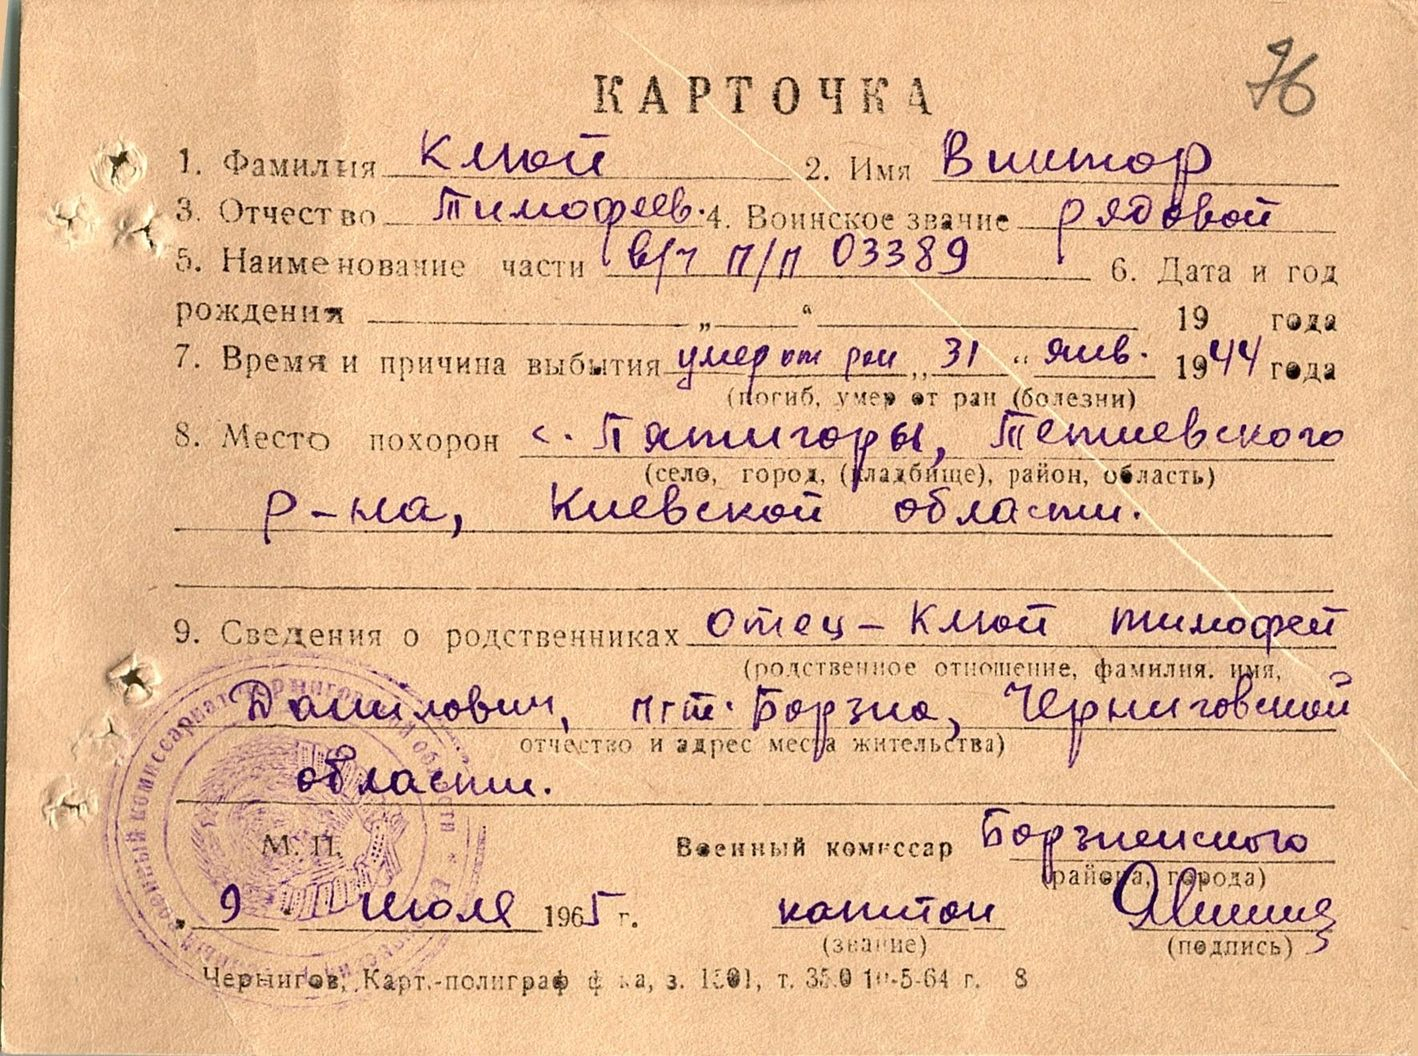 76
КАРТОЧКА
1. Фамилия Клюй 2. Имя Виктор
3. Отчество Тимофеев. 4. Воинское звание рядовой
5. Наименование части в/ч п/п 03389 6. Дата и год
рождения „ “ 19 года
7. Время и причина выбытия умер от ран „ 31 “ янв. 1944 года
(погиб, умер от ран (болезни)
8. Место похорон с. Пятигоры, Тетиевского
(село, город, (кладбище), район, область)
р-на, Киевской области.
9. Сведения о родственниках отец – Клюй Тимофей
(родственное отношение, фамилия. имя,
Данилович, пгт. Борзна, Черниговской
отчество и адрес места жительства)
области.
М. П. Военный комиссар Борзненского
(района, города)
„ 9 “ июля 1965 г. капитан
(звание) (подпись)
Чернигов, Карт.-полиграф ф-ка, з. т. 5-64 г. 8
комиссариат Черниговской области